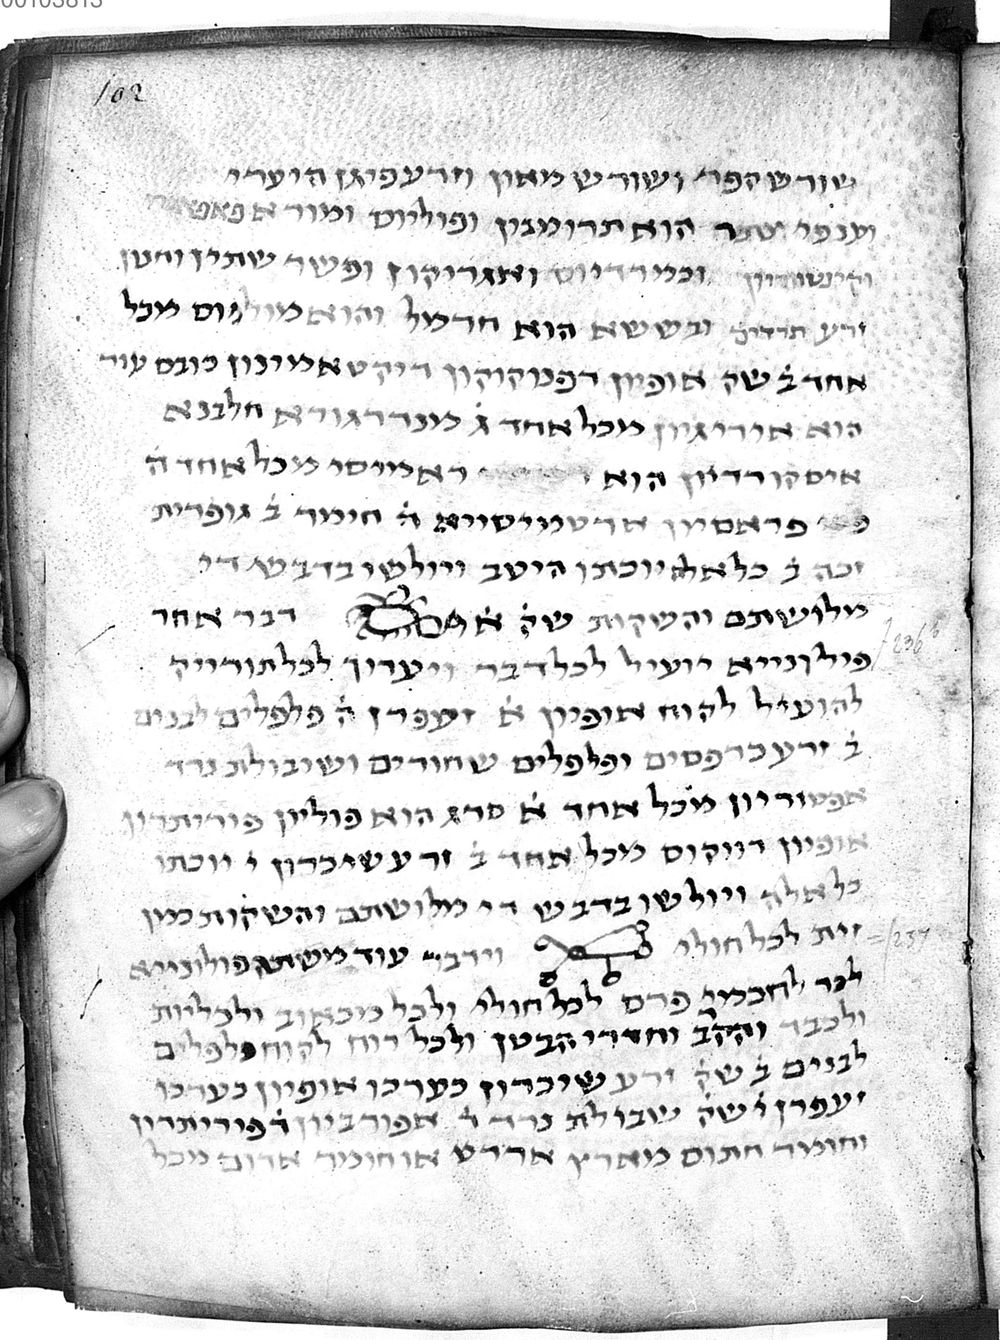 00103813
102
שורש הפרי ושורש מאון וזרע פיגן היערי
וענפי הוא תרומבין ופוליוס ומור
וכמדריוס ואגריקון ופשר שתין וחטן
זרע ובששא הוא חרמל והוא מכל
אחד ב̇ שק̇ אופיון דפנוקוקון דיקטאמינון כובס עוד
הוא אירינגיון מכל אחד ג̇ מנדרגורא חלבנא
איסקורדיון הוא ראמיסי מכל אחד ה̇
פראסיון ארטמיסייא ה̇ חימר ב̇ גופרית
זכה ב̇ כל אלה יוכתן היטב ויולשו בדבש די
מלושתם והשקות שק̇ א̇ דבר אחר
פילונייא יועיל לכל דבר ויערוך לכל תורייק
להועיל לקוח אופיון א̇ זעפרן ה̇ פלפלים לבנים
ב̇ זרע כרפסים ופלפלים שחורים ושיבולת נרד
אפטוריון מכל אחד א̇ סרג הוא פוליון פיריתרון
אופיון דווקוס מכל אחד ב̇ זרע שיכרון י̇ יוכתו
כל אלה ויולשו בדבש די מלושתם והשקות כמין
זית לכל חולי וידבר עוד משתה פולונייא
לבר לחכמי פרס לכל חולי ולכל מכאוב ולכליות
ולכבד והקרב וחדרי הבטן ולכל רוח לקוח פלפלים
לבנים ב̇ שק̇ זרע שיכרון כערכו אופיון כערכו
זעפרן ו̇ שק̇ שבולת נרד ד̇ אפורביון ד̇ פיריתרון
וחומר חתום מארץ אררט או חומר אדום מכל
236 b
237